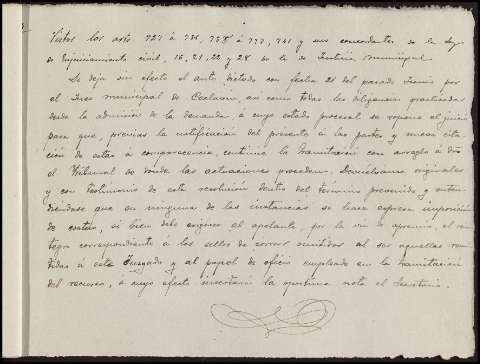 Vistos los arts. 727 á 731, 733 á 737, 741 y sus concordantes de la Ley
de Enjuiciamiento civil, 16, 21, 22 y 28 de la de Justicia municipal
Se deja sin efecto el auto dictado con fecha 21 del pasado Junio por
el Juez municipal de Ceclavin, así como todas las diligencias practicadas
desde la admisión de la demanda, á cuyo estado procesal se repone el juicio
para que, previas la notificación del presente á las partes y nueva cita-
ción de estas á comparecencia, continue la tramitación con arreglo á dro
el Tribunal de donde las actuaciones proceden. Devuélvanse originales
y con testimonio de esta resolución dentro del termino prevenido y enten-
diendose que en ninguna de las instancias se hace expresa imposición
de costas, si bien debe exigirse al apelante, por la via de apremio, el rein-
tegro correspondiente á los sellos de correos remitidos al ser aquellas remi-
tidas á este Juzgado y al papel de oficio empleado en la tramitación
del recurso, á cuyo efecto insertará la oportuna nota el Secretario.